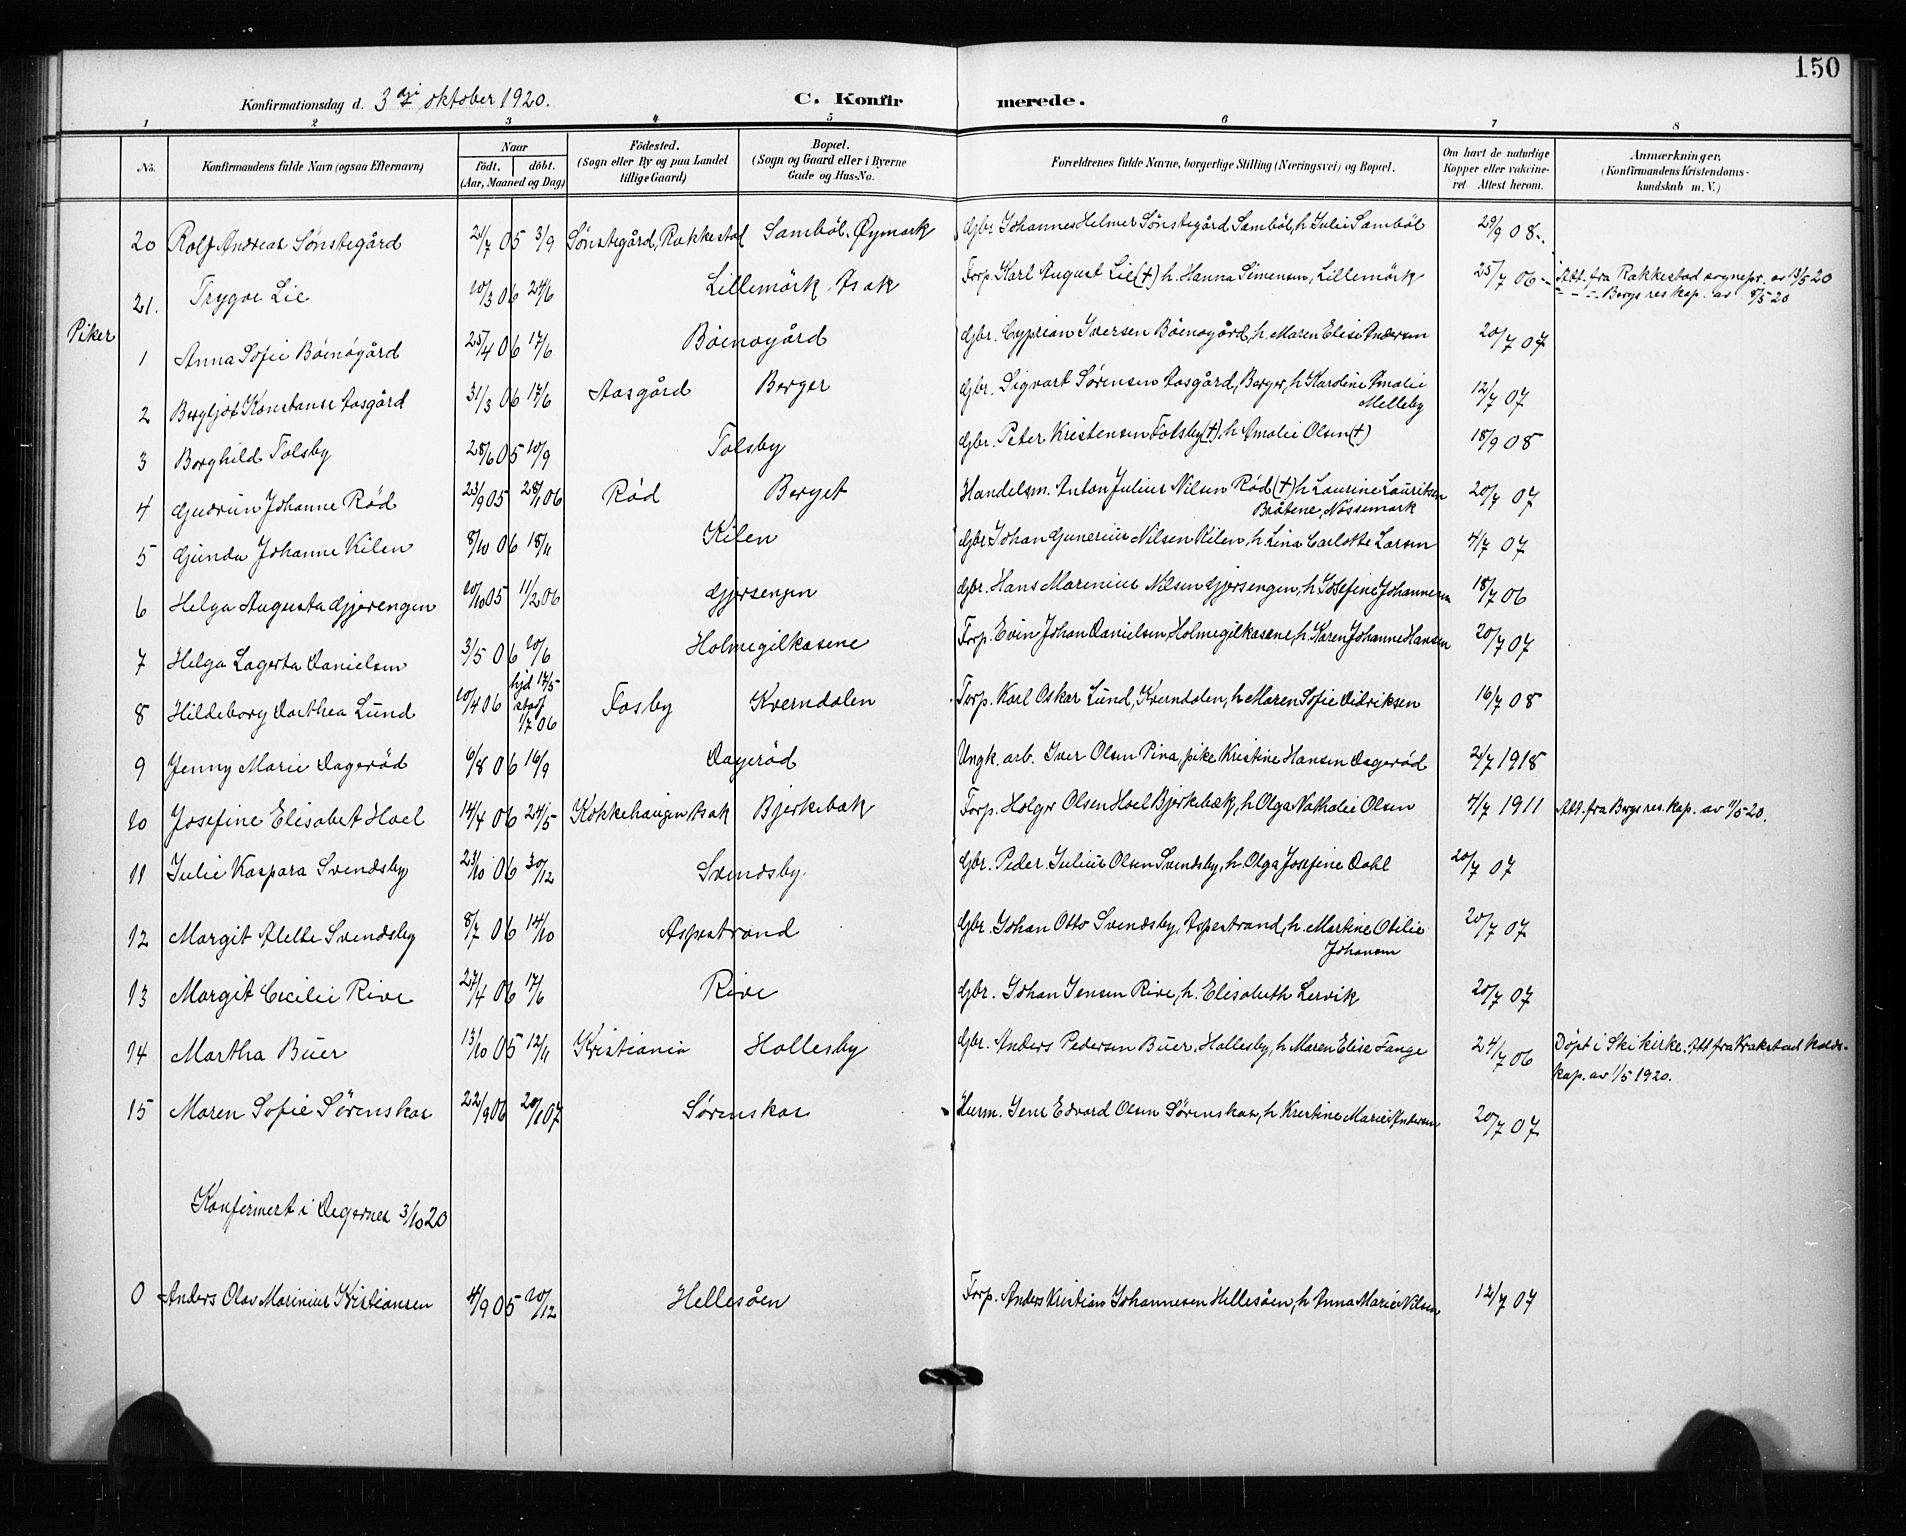 150
Konfirmationsdag d. 3dji oktober 1920. C. Konfirmerede.
1 2 3 4 5 6 7 8
No. Konfirmandens fulde Navn (ogsaa Efternavn) Naar født. døbt. (Aar, Maaned og Dag) Fødested. (Sogn eller By og paa Landet tillige Gaard) Bopæl. (Sogn og Gaard eller i Byerne Gade og Hus-No. Forældrenes fulde Navne, borgerlige Stilling (Næringsvei) og Bopæl. Om havt de naturlige Kopper eller vakcineret. Attest herom. Anmærkninger. (Konfirmandens Kristendomskundskab m. V.)
20 Rolf Andreas Sønstegård 21/7 05 3/9 Sønstegård, Rakkestad Sambøl. Øymark Gbr. Johannes Helmer Sønstegård Sambøl, h Julie Sambøl 29/9 08.
21. Trygve Lie 10/3 06 24/6 Lillemörk. Asak Forp. Karl August Lie (†) h. Hanna Simensen, Lillemörk 25/7 06 Att. fra Rakkestad sognepr. av 19/5 20
- - - Bergs res kap. av 8/5 20
Piker
1 Anna Sofie Böenögård 25/4 06 17/6 Böenögård Gbr. Cyprian Iversen Böenögård, h. Maren Elise Andersen 20/7 07
2 Bergljot Konstanse Aasgård 31/3 06 17/6 Aasgård Berger Gbr. Sigvart Sørensen Aasgård, Berger, h Karoline Amalie
Melleby 12/7 07
3 Borghild Tolsby 28/6 05 10/9 Tolsby Gbr. Peter Kristensen Tolsby (†), h Amalie Olsen (†) 18/9 08
4 Gudrun Johanne Rød 23/9 05 28/1 06 Rød Berget Handelsm. Anton Julius Nilsen Rød (†) h Laurine Lauritsen
Bråtene, Nössemark 20/7 07
5 Gunda Johanne Kilen 8/10 06 18/11 Kilen Gbr Johan Gunerius Nilsen Kilen, h Lina Carlotte Larsen 4/7 07
6 Helga Augusta Gjørengen 10/10 05 11/2 06 Gjørsengen Gbr. Hans Marenius Nilsen Gjørsengen, h Josefine Johannesen 18/7 06
7 Helga Lagerta Danielsen 3/5 06 10/6 Holmegilkasene Forp. Evin Johan Danielsen, Holmegilkasene, h. Karen Johanne Hansen 20/7 07
8 Hildeborg Dorthea Lund 10/4 06 hjd 17/5
stadf
1/7 06 Fosby Kverndalen Forp. Karl Oskar Lund, Kverndalen, h Maren Sofie Didriksen 16/7 08
9 Jenny Marie Dagerød 6/8 06 16/9 Dagerød Ungk. arb. Iver Olsen Pina, pike Kristine Hansen Dagerød 2/7 1918
10 Josefine Elisabet Hoel 14/4 06 24/5 Kokkehaugen Asak Bjerkebæk Forp. Holger Olsen Hoel Bjerkebæk, h Olga Nathalie Olsen 4/7 1911 Att. fra Bergs res. kap. av 11/5 20.
11 Julie Kaspara Svendsby 23/10 06 30/12 Svendsby. Gbr. Peder Julius Olsen Svendsby, h Olga Josefine Dahl 20/7 07
12 Margit Alette Svendsby 8/7 06 14/10 Aspestrand Gbr. Johan Otto Svendsby, Aspestrand, h. Martine Otilie
Johansen 20/7 07
13 Margit Cecilie Rive 27/4 06 17/6 Rive Gbr. Johan Jensen Rive, h. Elisabeth Lervik 20/7 07
14 Martha Buer 13/10 05 12/11 Kristiania Hallesby Gbr. Anders Pedersen Buer, Hallesby, h Maren Elise Tange 24/7 06 Døpt i Ski kirke. Att fra Krakstad
kap. av 1/5 1920.
15 Maren Sofie Sørenskar 22/9 06 20/1 07 Sørenskar Husm. Jens Edvard Olsen Sørenskar, h Kristine Marie Andersen 20/7 07
Konfirmert i Degernes 3/10 20
0 Anders Olav Marinius Kristiansen 4/9 05 10/12 Hellesöen Forp. Anders Kristian Johannesen Hellesöen, h Anna Marie Nilsen 12/7 07